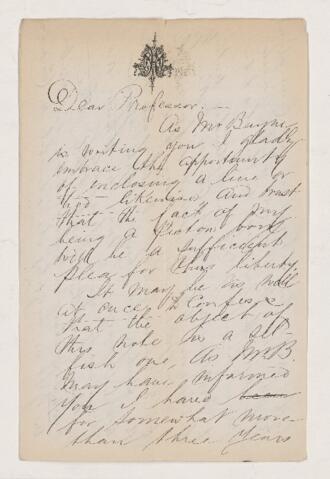 Dear Professor:—
As Mr Burns
is writing you I gladly
embrace the opportunity
of enclosing a line or
two likewise and trust
that the fact of my
being a
will be a sufficient
plea for this liberty.
It may be as well
at once to confess
that the object of
this note is a sel-
fish one, as Mr B.
may have informed
you I have been
for somewhat more
than three years